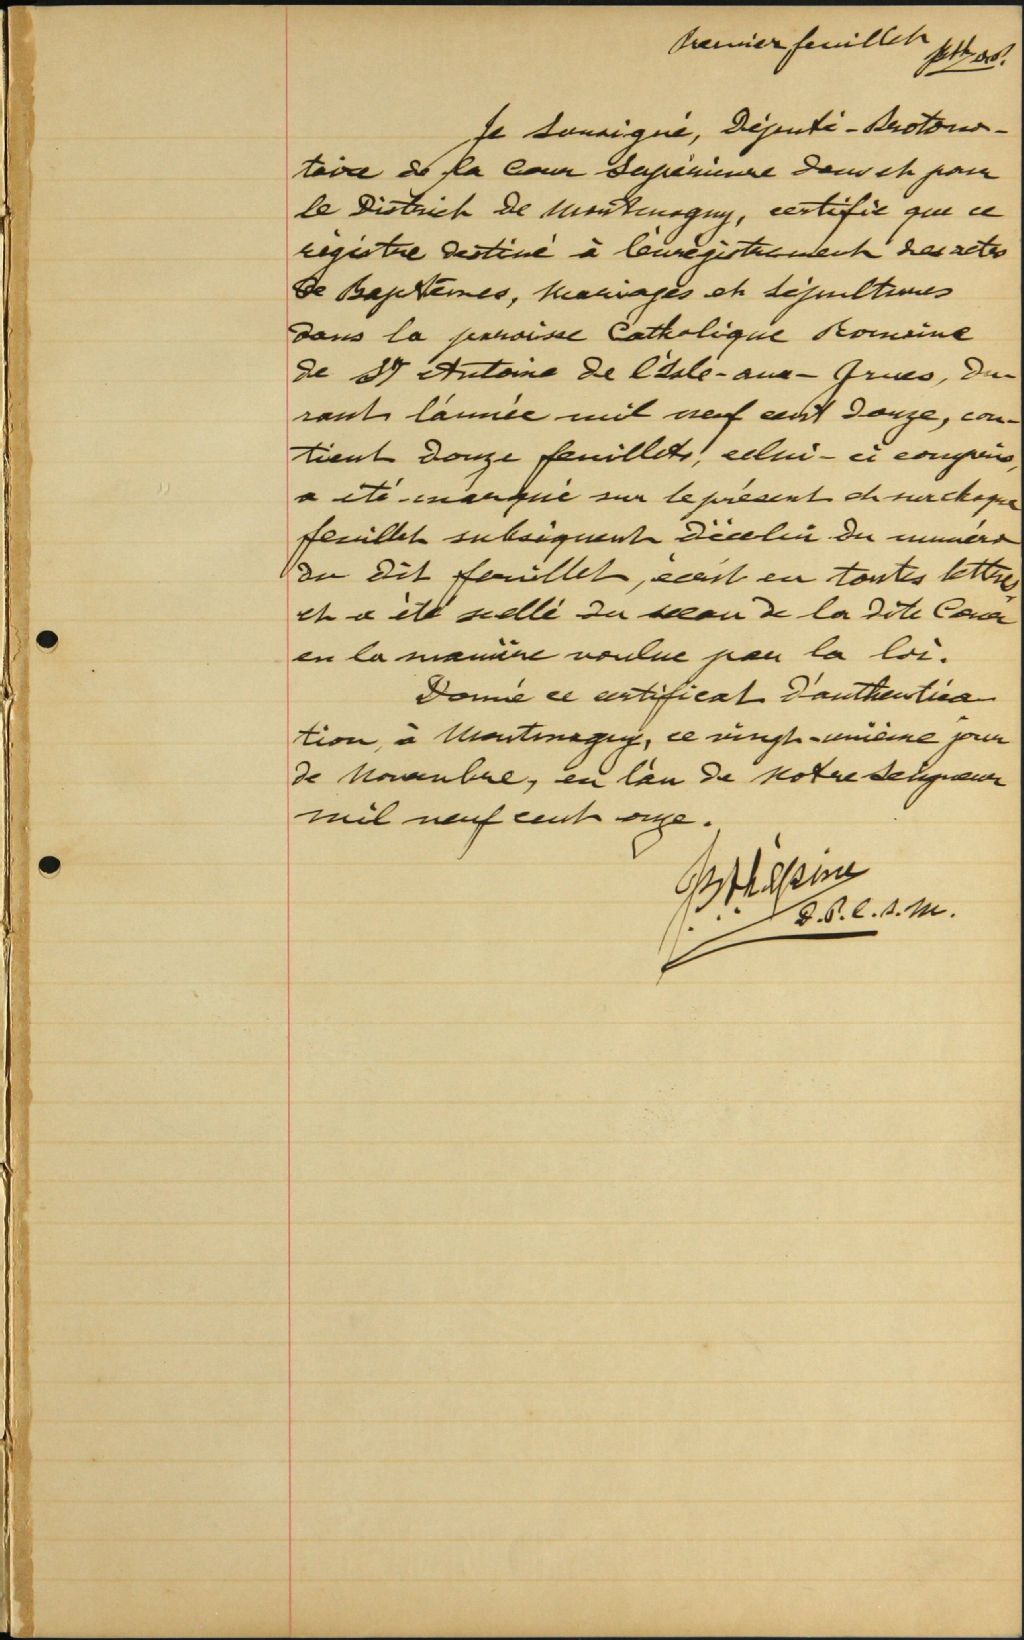 Premier feuillet
Je soussigné, Député-Protono-
taire de la Cour Supérieure dans et pour
le District de Montmagny, certifie que ce
régistre destiné à l'enrégistrement des actes
de Baptêmes, Mariages et Sépultures
dans la paroisse Catholique Romaine
de St Antoine de l'Isle-aux-Grues, du-
rant l'année mil neuf cent douze, con-
tient douze feuillets, celui-ci compris,
a été marqué sur le présent et sur chaque
feuillet subséquent d'icelui du numéro
du dit feuillet, écrit en toutes lettres,
et a été scellé du sceau de la dite Cour
en la manière voulue par la loi.
Donné ce certificat d'authentica
tion, à Montmagny, ce vingt-unième jour
de Novembre, en l'an de Notre Seigneur
mil neuf cent onze.
D.P.C.S.M.